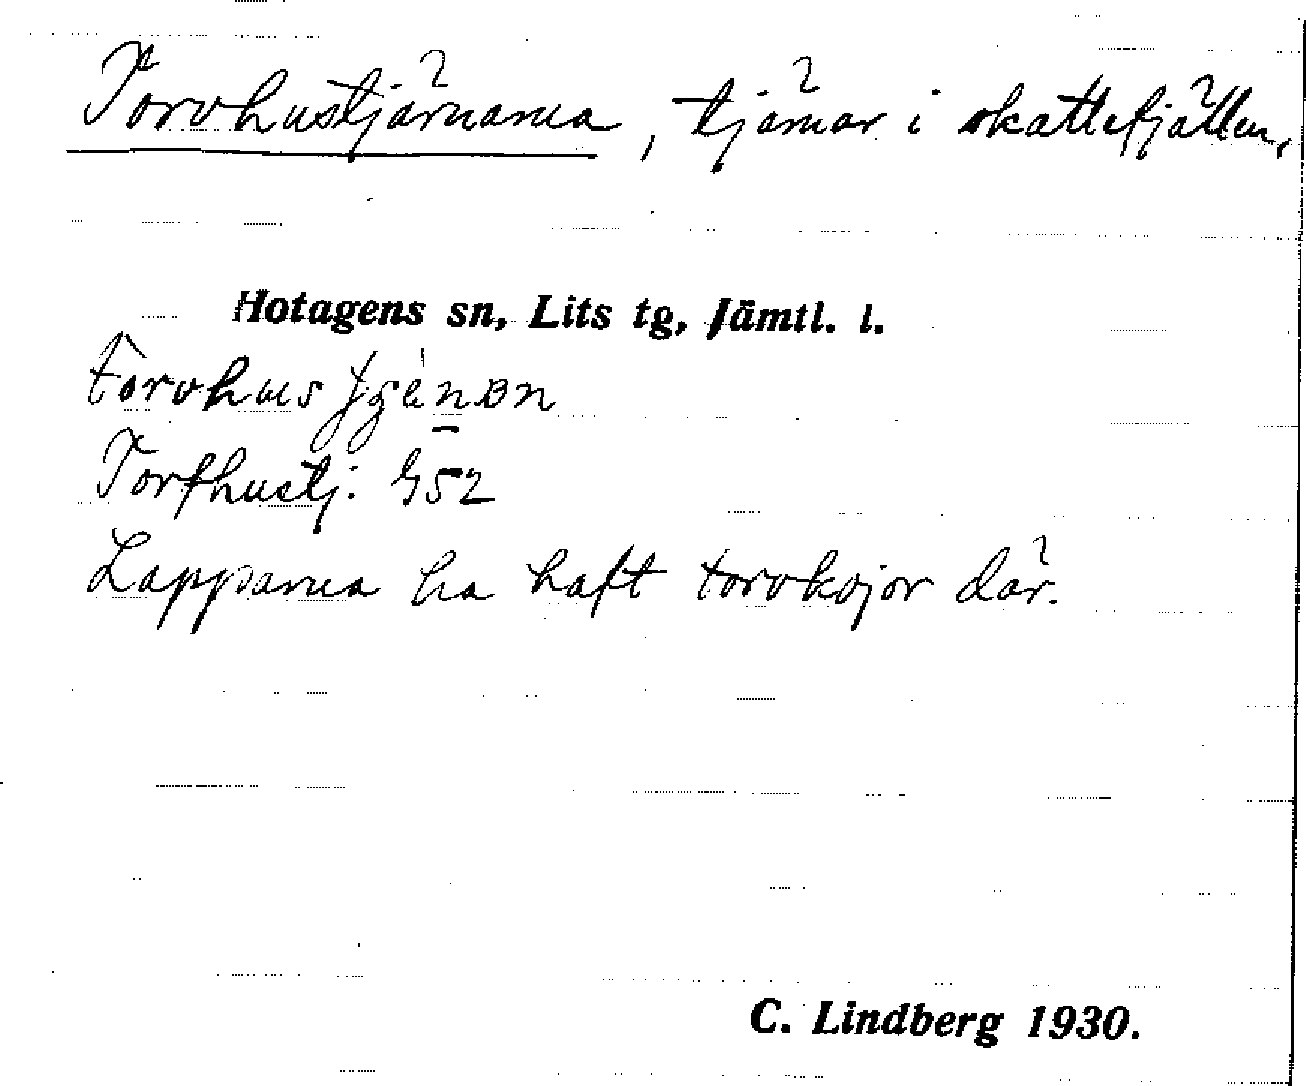 Torvhustjärnarna, tjärnar i skattefjällen,
Hotagens sn, Lits tg, Jämtl. l.
Torfhustj. G52
Lapparna ha haft torvkojor där.
C. Lindberg 1930.